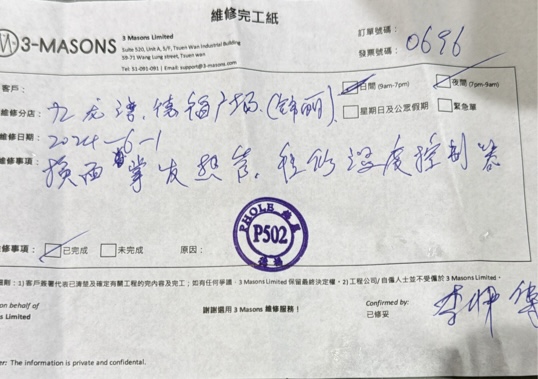 維修完工紙
3-MASONS
3 Masons Limited
Suite 520, Unit A, 5/F, Tsuen Wan Industrial Building
59-71 Wang Lung street, Tsuen wan
Tel: 51-091-091 | Email: support@3-masons.com
訂單號碼：
發票號碼： 0696
客戶：
日間 (9am-7pm)
夜間 (7pm-9am)
維修分店： 九龙湾.德福广场.(锦丽)
星期日及公眾假期
緊急單
維修日期： 2024-6-1
維修事項： 换两 掌发热管. 温度控制器
PHOLE
P502
維修事項： 已完成 未完成 原因：
細則：1) 客戶簽署代表已清楚及確定有關工程的完內容及完工；如有任何爭議，3-Masons Limited 保留最終決定權。2) 工程公司/自僱人士並不受僱於 3 Masons Limited。
on behalf of
Limited
謝謝選用 3 Masons 維修服務！
Confirmed by:
已修妥
The information is private and confidential.